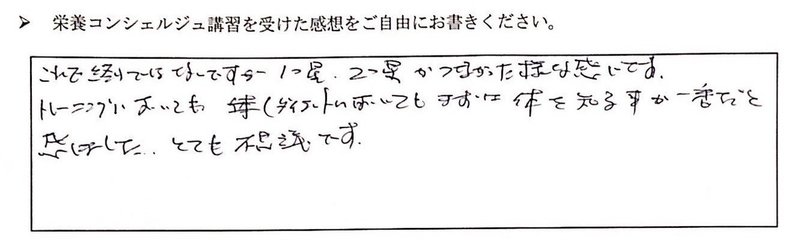 ➤ 栄養コンシェルジュ講習を受けた感想をご自由にお書きください。
これで終りではないですが 1つ星、2つ星がつながった様な感じです。
トレーニングにおいても 食(ダイエット)においても まずは 体を知る事が一番だと
感じました。とても不思議です。